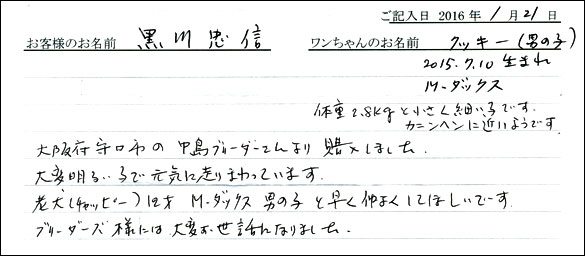 ご記入日 2016年 1月 21日
お客様のお名前 黒川 忠信 ワンちゃんのお名前 クッキー(男の子)
2015.7.10 生まれ
M-ダックス
体重2.8kgと小さく細い子です.
カニンヘンに近いようです
大阪府守口市の中島ブリーダーさんより購入しました.
大変明るい子で元気に走りまわっています.
老犬(チャッピー)12才 M-ダックス 男の子と早く仲よくしてほしいです.
ブリーダーズ様には大変お世話になりました.